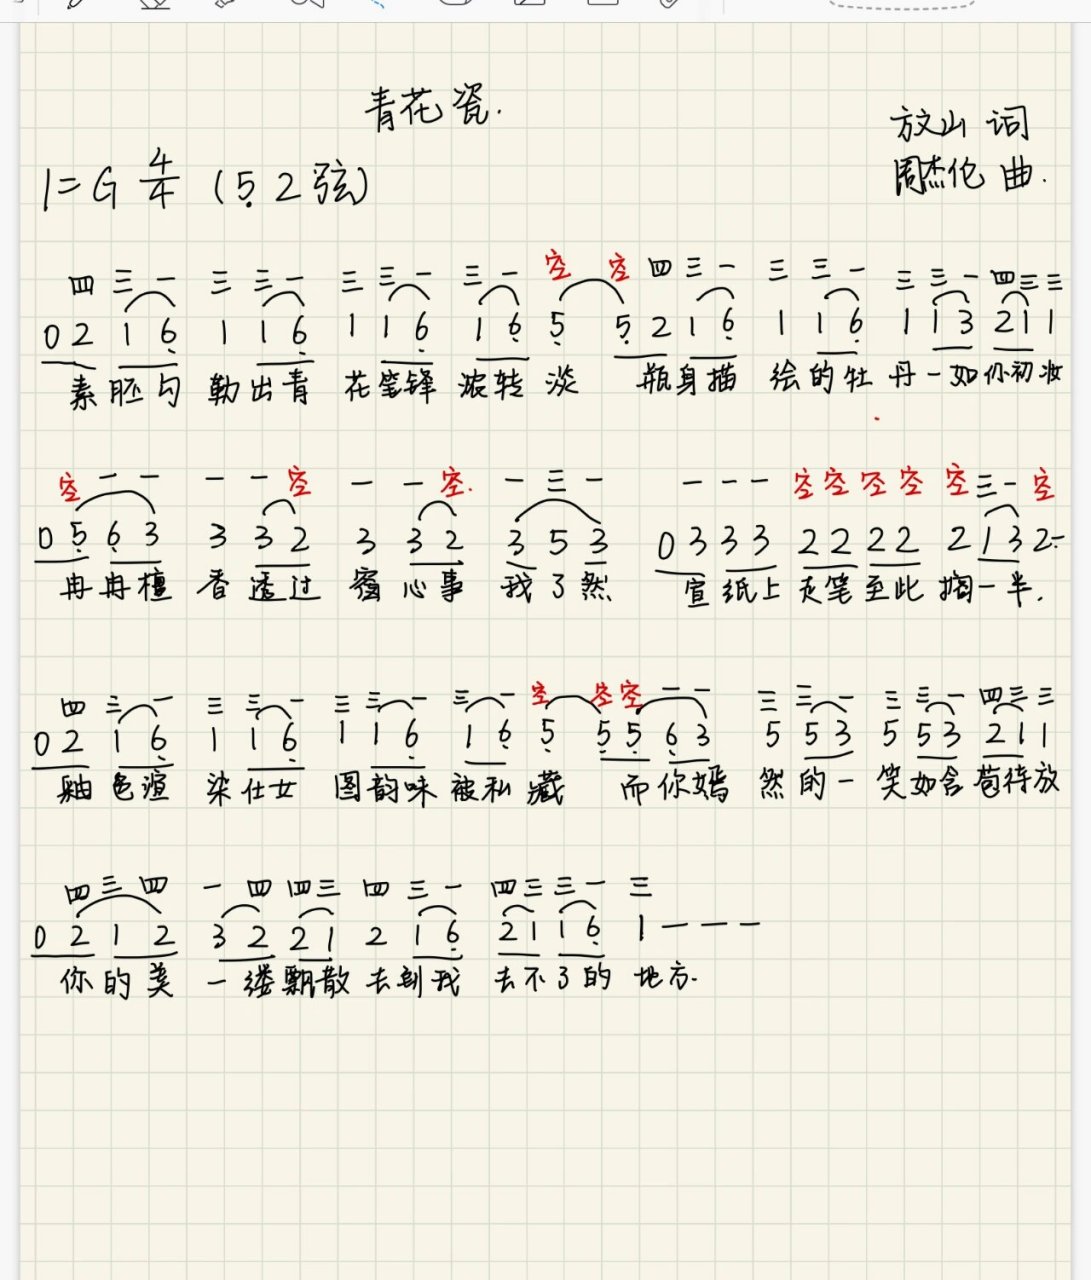 青花瓷.
方文山 词
1=G 4/4 (5̣ 2弦)
周杰伦 曲.
四 三 一 三 三 一 三 三 一 三 一 空 空 四 三 一 三 三 一 三 三 一 四 三 三
0 2 1 6̣ 1 1 6̣ 1 1 6̣ 1 6̣ 5̣ 5̣ 2 1 6̣ 1 1 6̣ 1 1 3 2 1 1
素胚勾 勒出青 花笔锋 浓转淡 瓶身描 绘的牡 丹一如你初妆
空 一 一 一 一 空 一 一 空. 一 三 一 一 一 一 空 空 空 空 空 三 一 空
0 5̣ 6̣ 3 3 3 2 3 3 2 3 5 3 0 3 3 3 2 2 2 2 2 1 3 2 -
冉冉檀 香透过 窗心事 我了然 宣纸上 走笔至此 搁一半.
四 三 一 三 三 一 三 三 一 三 一 空 空 空 一 一 三 三 一 三 三 一 四 三 三
0 2 1 6̣ 1 1 6̣ 1 1 6̣ 1 6̣ 5̣ 5̣ 5̣ 6̣ 3 5 5 3 5 5 3 2 1 1
釉色渲 染仕女 图韵味 被私藏 而你嫣 然的一 笑如含苞待放
四 三 四 一 四 四 三 四 三 一 四 三 三 一 三
0 2 1 2 3 2 2 1 2 1 6̣ 2 1 1 6̣ 1 - - -
你的美 一缕飘散 去到我 去不了的 地方.